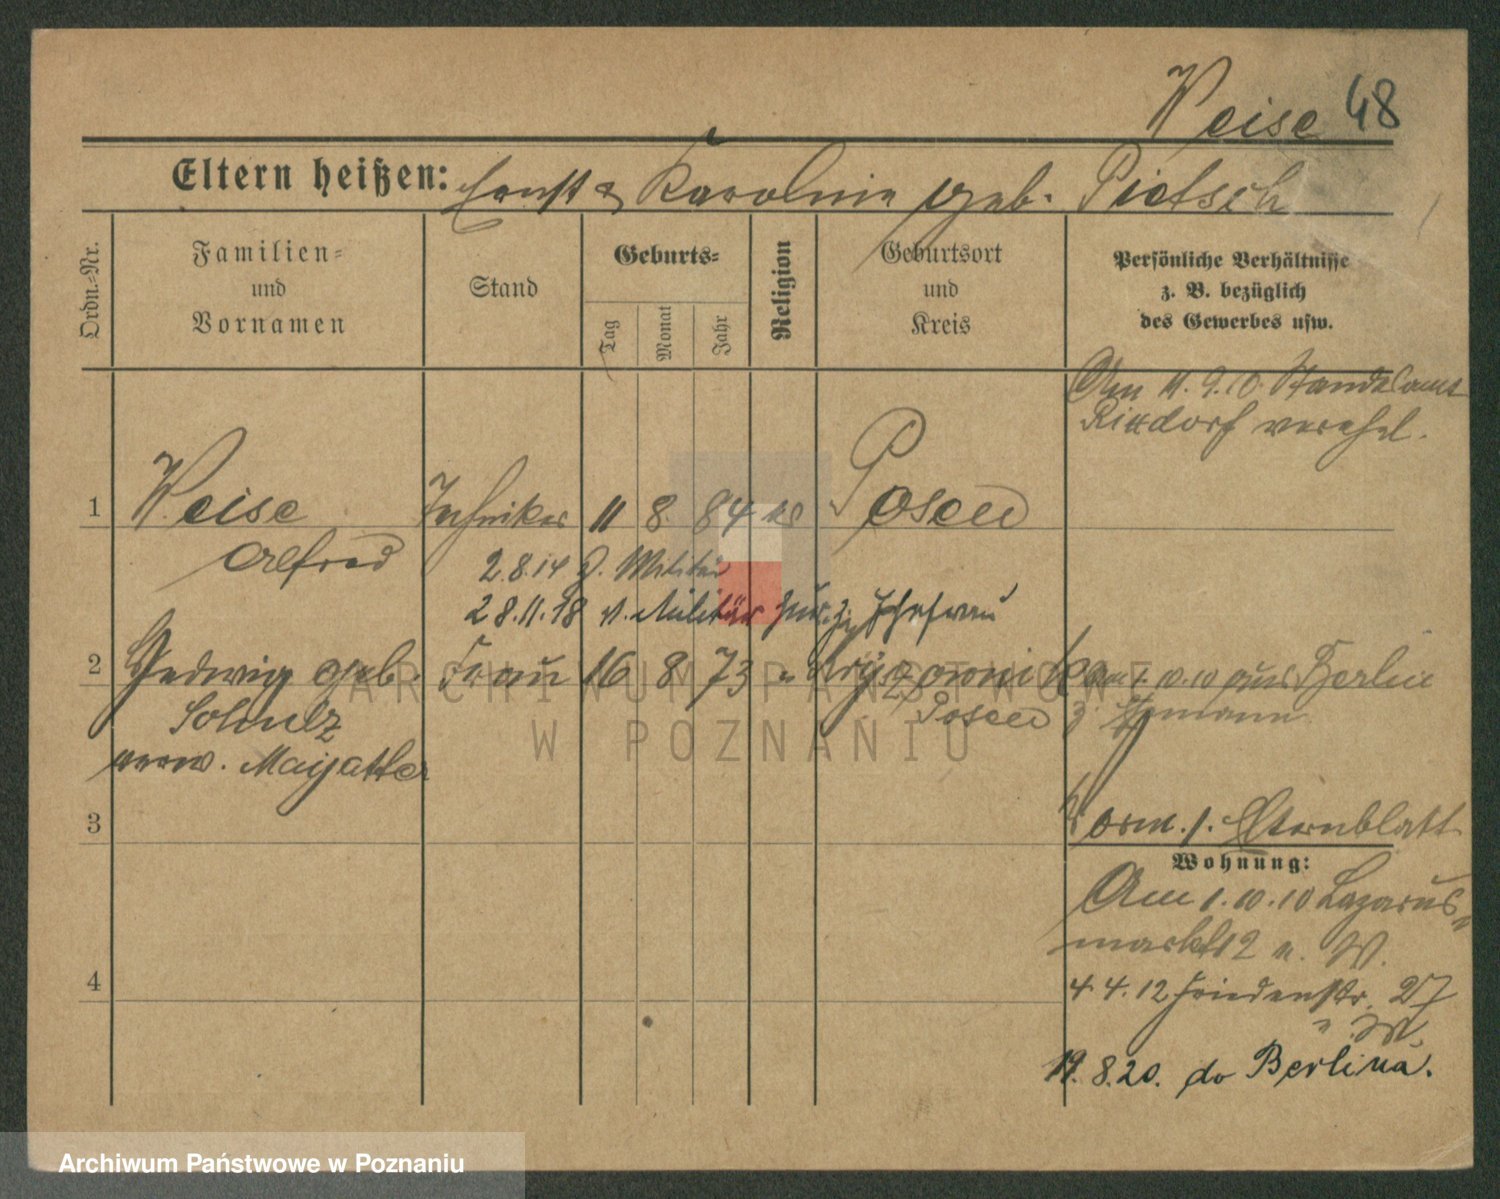 Weise 48
Eltern heißen: Ernst & Karolina geb. Pietsch
Ordn.-Nr.
Familien-
und
Vornamen
Stand
Geburts-
Tag
Monat
Jahr
Religion
Geburtsort
und
Kreis
Persönliche Verhältnisse
z. B. bezüglich
des Gewerbes usw.
Am 11. 9. 10. Standesamt
Rixdorf verehel.
1 Weise Techniker 11 8. 84 Posen
Alfred
2.8.14 z. Militär
28.11.18 v. Militär zur. z. Ehefrau
2 Hedwig geb. Frau 16 8 73 " 10.10 aus Berlin
Posen z. Ehemann
verw.
3
Vorm. s. Stammblatt
Wohnung:
Am 1.10.10 Lazarus-
markt 12 n. W.
4
4.4.12 Friedenstr. 27
19.8.20. do Berlina.
ARCHIWUM PAŃSTWOWE
W POZNANIU
Archiwum Państwowe w Poznaniu